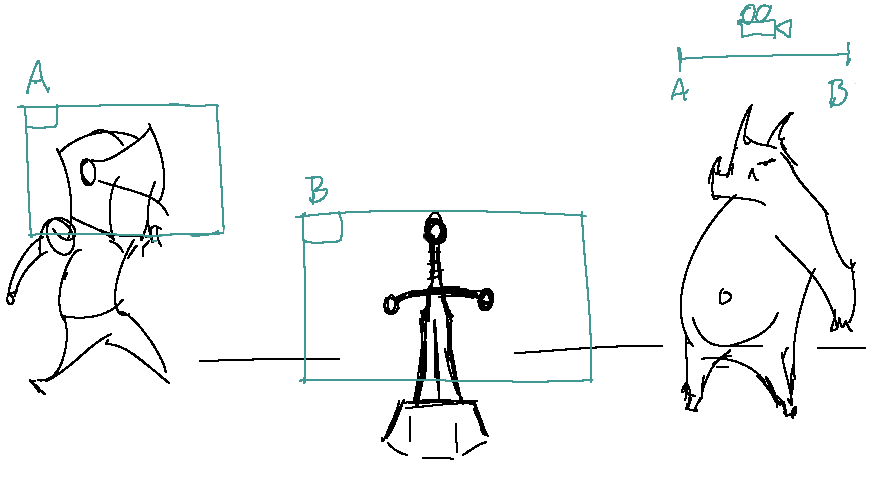 A
B
A B